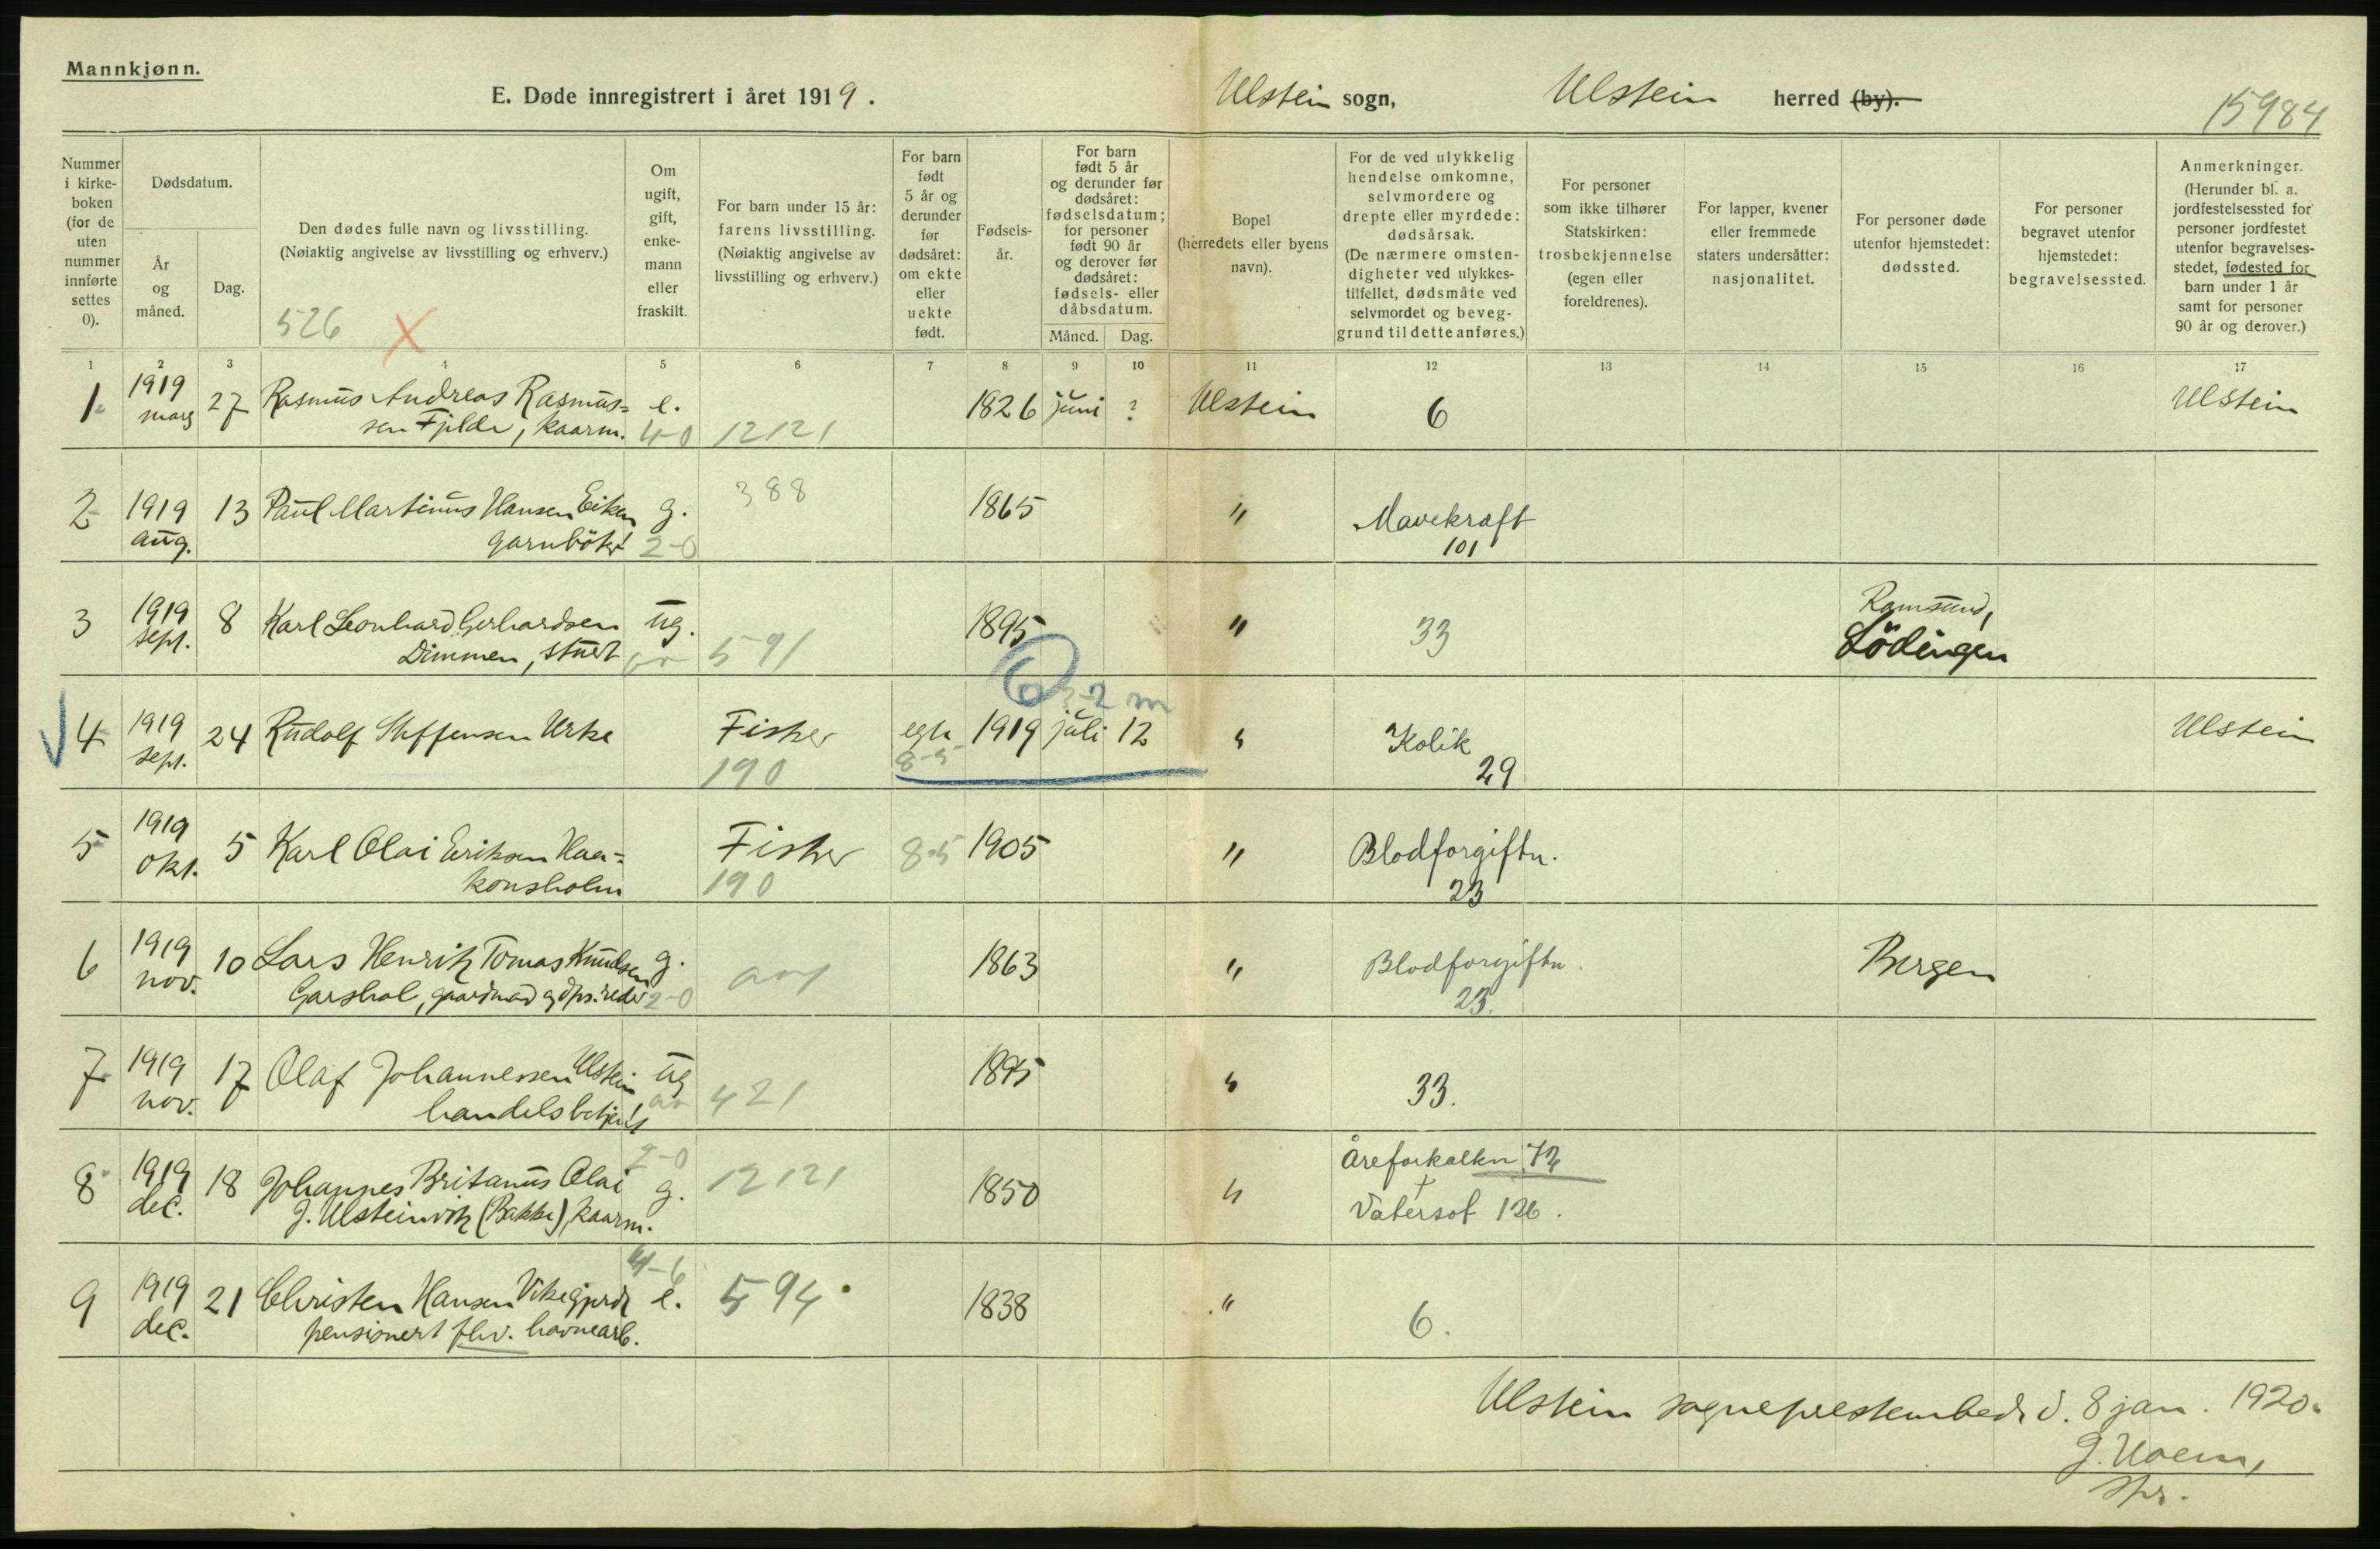 Mannkjønn.
E. Døde innregistrert i året 1919.
Ulstein sogn,
Ulstein herred (by).
15984
Nummer i kirke-boken (for de uten nummer innførte settes 0).
Dødsdatum.
År og måned.
Dag.
Den dødes fulle navn og livsstilling.
(Nøiaktig angivelse av livsstilling og erhverv.)
526 X
Om ugift, gift, enke-mann eller fraskilt.
For barn under 15 år: farens livsstilling. (Nøiaktig angivelse av livsstilling og erhverv.)
For barn født 5 år og derunder før dødsåret: om ekte eller uekte født.
Fødsels-år.
For barn født 5 år og derunder før dødsåret: fødselsdatum; for personer født 90 år og derover før dødsåret: fødsels- eller dåbsdatum.
Måned.
Dag.
Bopel (herredets eller byens navn).
For de ved ulykkelig hendelse omkomne, selvmordere og drepte eller myrdede: dødsårsak. (De nærmere omsten-digheter ved ulykkes-tilfellet, dødsmåte ved selvmordet og beveg-grund til dette anføres.)
For personer som ikke tilhører Statskirken: trosbekjennelse (egen eller foreldrenes).
For lapper, kvener eller fremmede staters undersåtter: nasjonalitet.
For personer døde utenfor hjemstedet: dødssted.
For personer begravet utenfor hjemstedet: begravelsessted.
Anmerkninger. (Herunder bl. a. jordfestelsessted for personer jordfestet utenfor begravelses-stedet, fødested for barn under 1 år samt for personer 90 år og derover.)
1 2 3 4 5 6 7 8 9 10 11 12 13 14 15 16 17
1 1919 mars 27 Rasmus Andreas Rasmus=
sen Fjelde, kaarm. e. 4-0 12121 1826 juni ? Ulstein 6 Ulstein
2 1919 aug. 13 Paul Martinus Hansen Eiken
garnbøter g. 2-0 388 1865 " Mavekræft
101
3 1919 sept. 8 Karl Leonhard Gerhardsen
Dimmen, stuert ug. 591 1895 " 33 Ramsund,
Lödingen
4 1919 sept. 24 Rudolf Steffensen Urke Fisker
190 egte 8-5 1919 juli 12 " Kolik
29 Ulstein
2 m
5 1919 okt. 5 Karl Olai Eriksen Haa=
konsholm Fisker
190 8-5 1905 " Blodforgiftn.
23
6 1919 nov. 10 Lars Henrik Tomas Knudsen
Garshol, gaardmand og dps.reder g. 2-0 1863 " Blodforgiftn.
23. Bergen
7 1919 nov. 17 Olaf Johannessen Ulstein
handelsbetjent ug 421 1895 " 33.
8 1919 dec. 18 Johannes Britanus Olai
J. Ulsteinvik (Bakke), kaarm. 2-0 g. 12121 1850 " Åreforkalkn. 72
+
Vatersot 126.
9 1919 dec. 21 Christen Hansen Vikegjerde
pensionert fhv. havnearb. 4-6 e. 594 1838 " 6.
Ulstein sogneprestembede d. 8 jan. 1920.
J. Hoem,
spr.